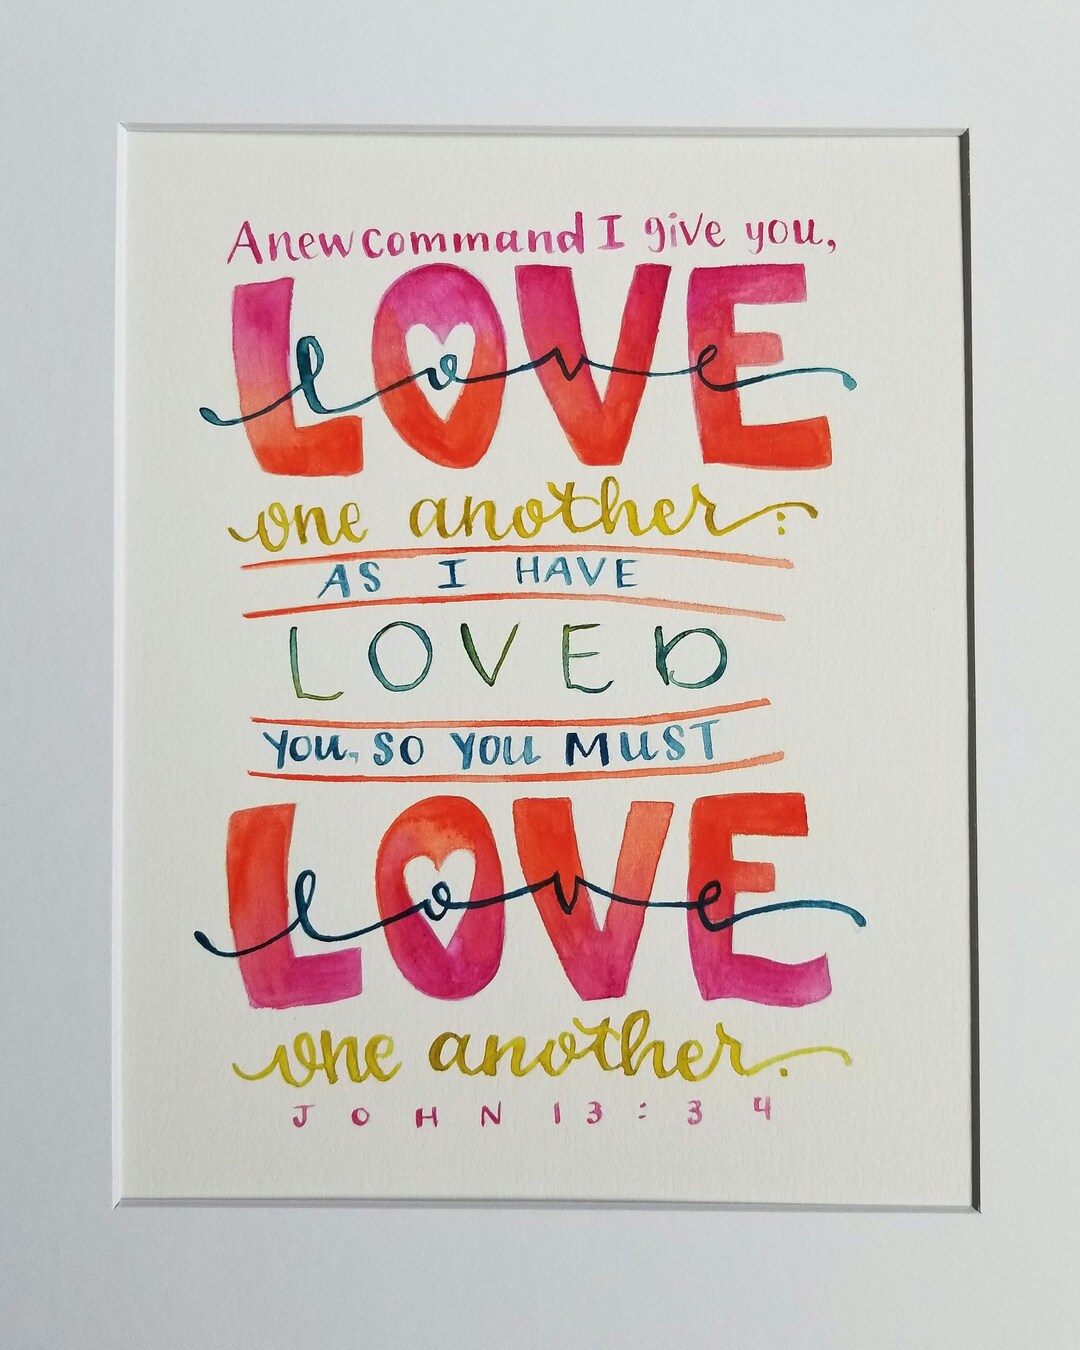 A new command I give you,
LOVE
love
one another:
AS I HAVE
LOVED
YOU, SO YOU MUST
LOVE
love
one another.
JOHN 13:34